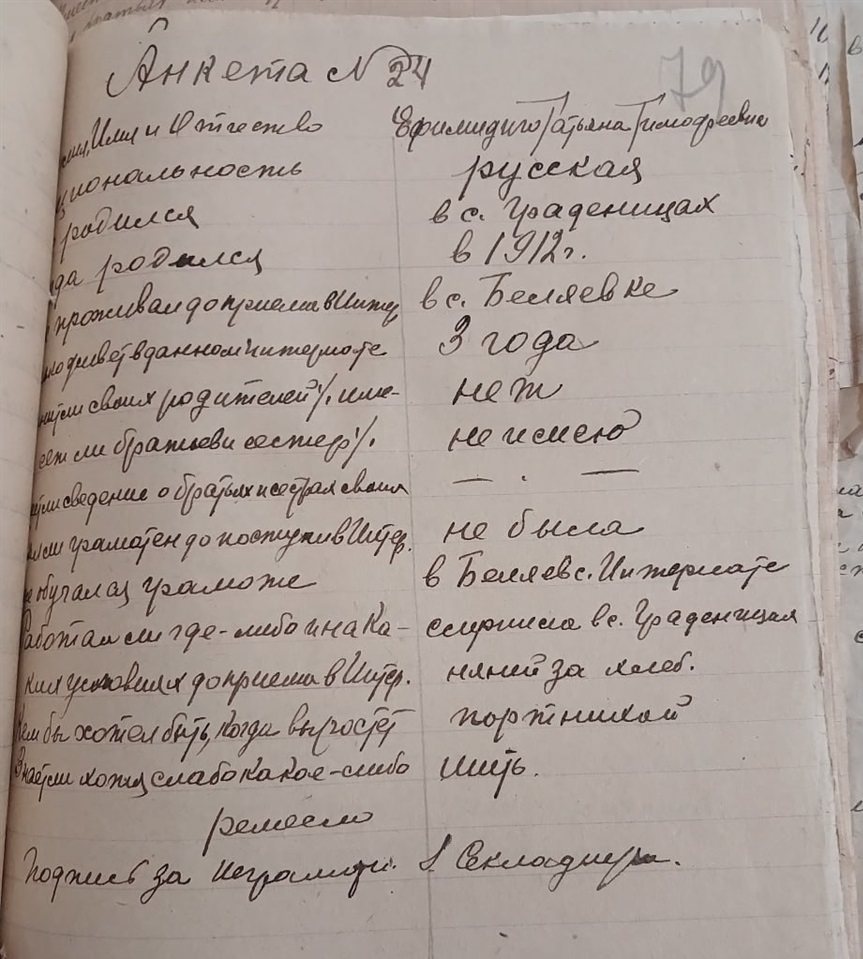 Анкета N 24
79
Имя и Отчество Татьяна Тимофеевна
циональность русская
родился в с. Граденицах
да родился в 1912 г.
проживал до приема в Интер. в с. Беляевке
живет в данном интернате 3 года
ли своих родителей /. име- нет
ет ли братьев и сестер /. не имею
ли сведение о братьях и сестрах своих — . —
ли грамотен до поступив Интер. не была
обучался грамоте в Беляевс. Интернате
Работал ли где-либо и на ка- служила в с. Граденицах
ких условиях до приема в Интер. няней за хлеб.
Кем бы хотел быть, когда выростет портнихой
Знает ли хотя слабо какое-либо шить.
ремесло
Подпись за неграмотн.